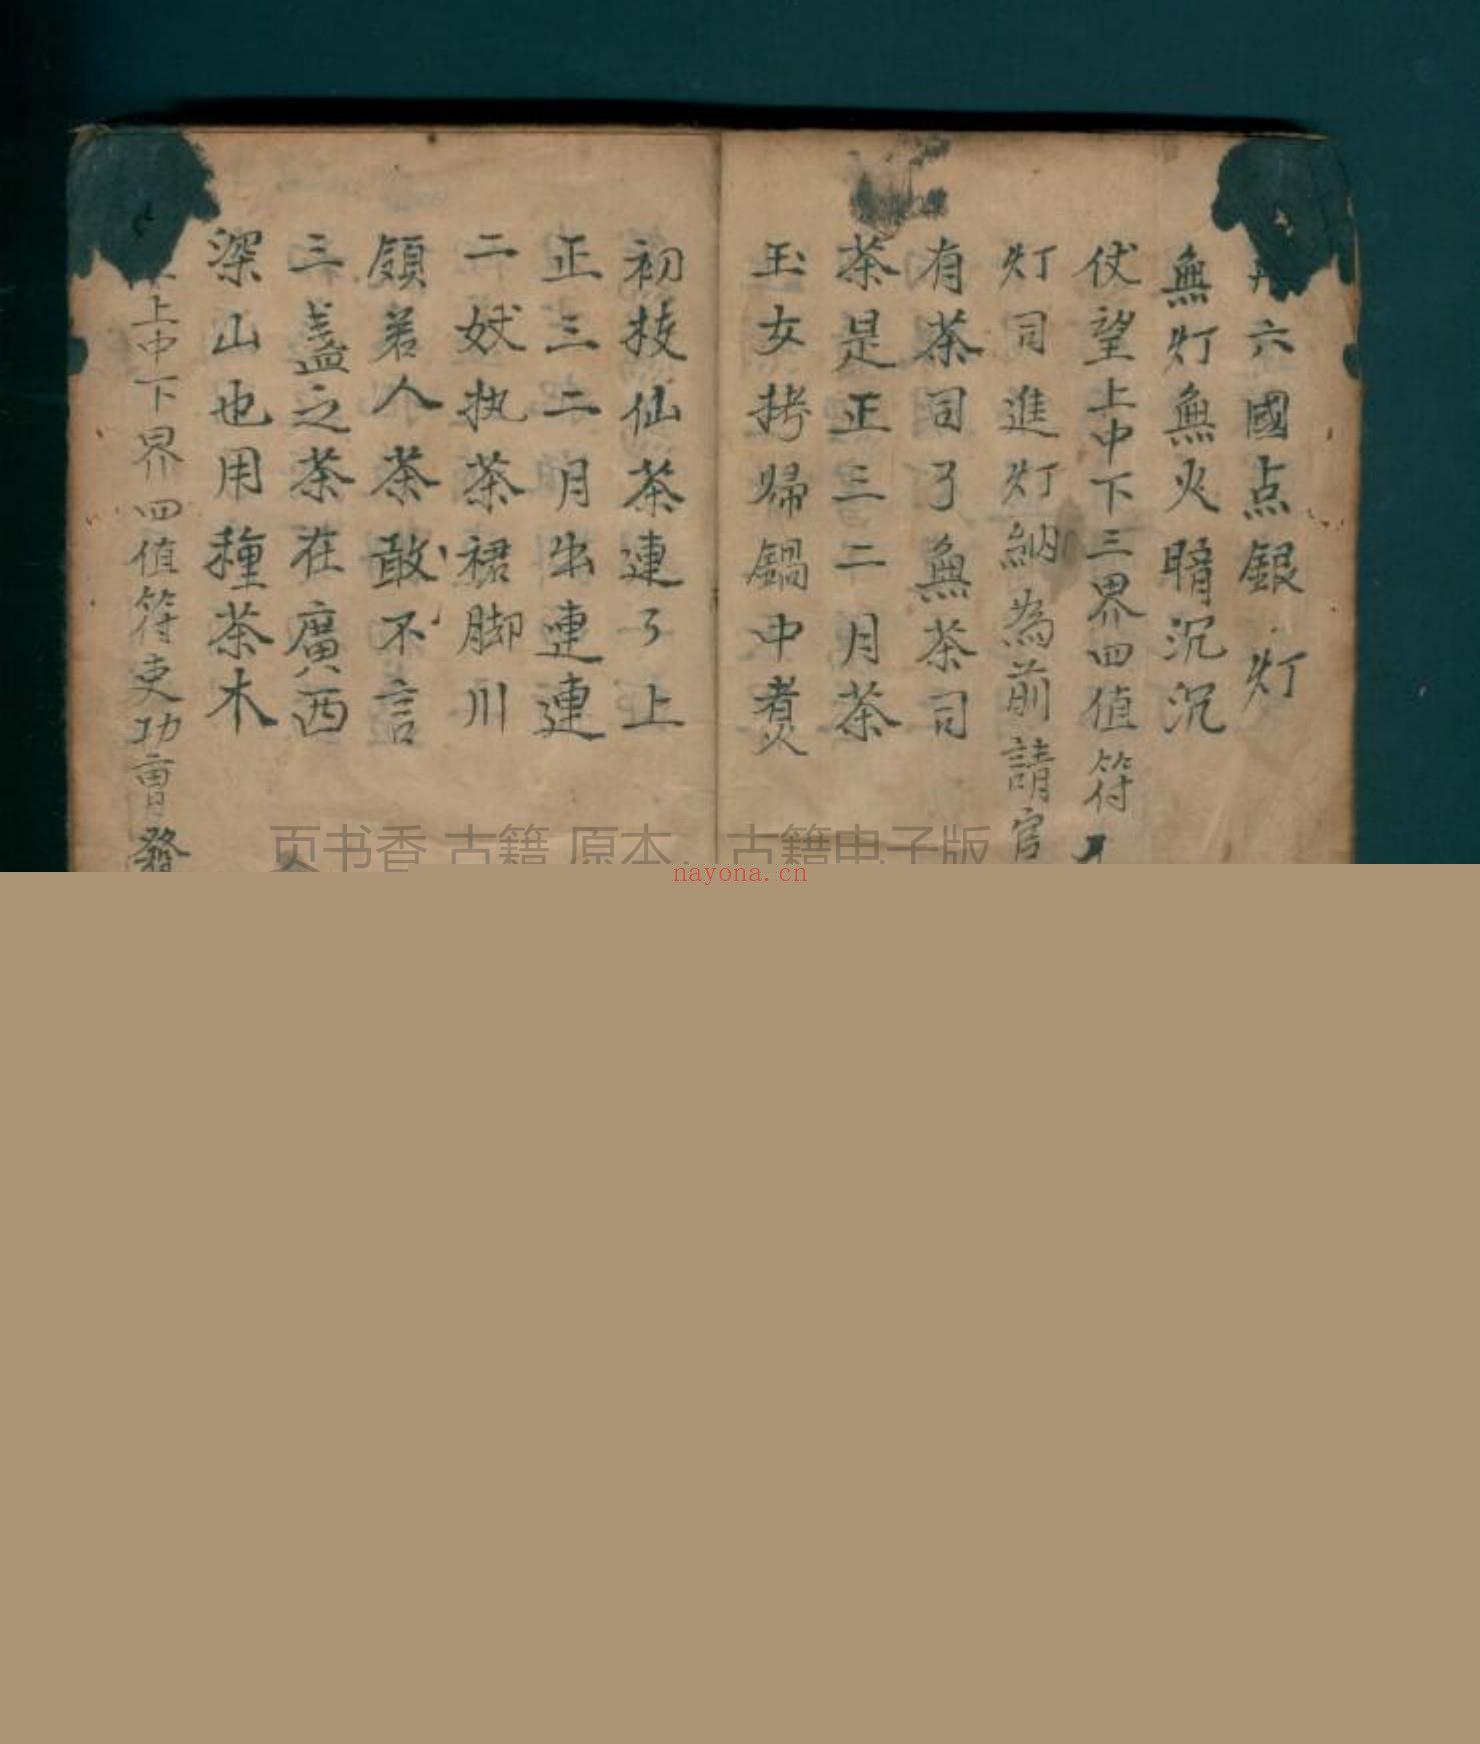 六國点銀灯
無灯無火暗沉沉
伏望上中下三界四值符
灯司進灯納為前請官
有茶司了無茶司
茶是正三二月茶
玉女拷歸鍋中煑
初枝仙茶連了上
正三二月出連連
二妖执茶裙脚川
領若人茶敢不言
三盞之茶在廣西
深山也用種茶木
上中下界四值符吏功曹發
页书香 古籍 原本、古籍电子版
nayona.cn